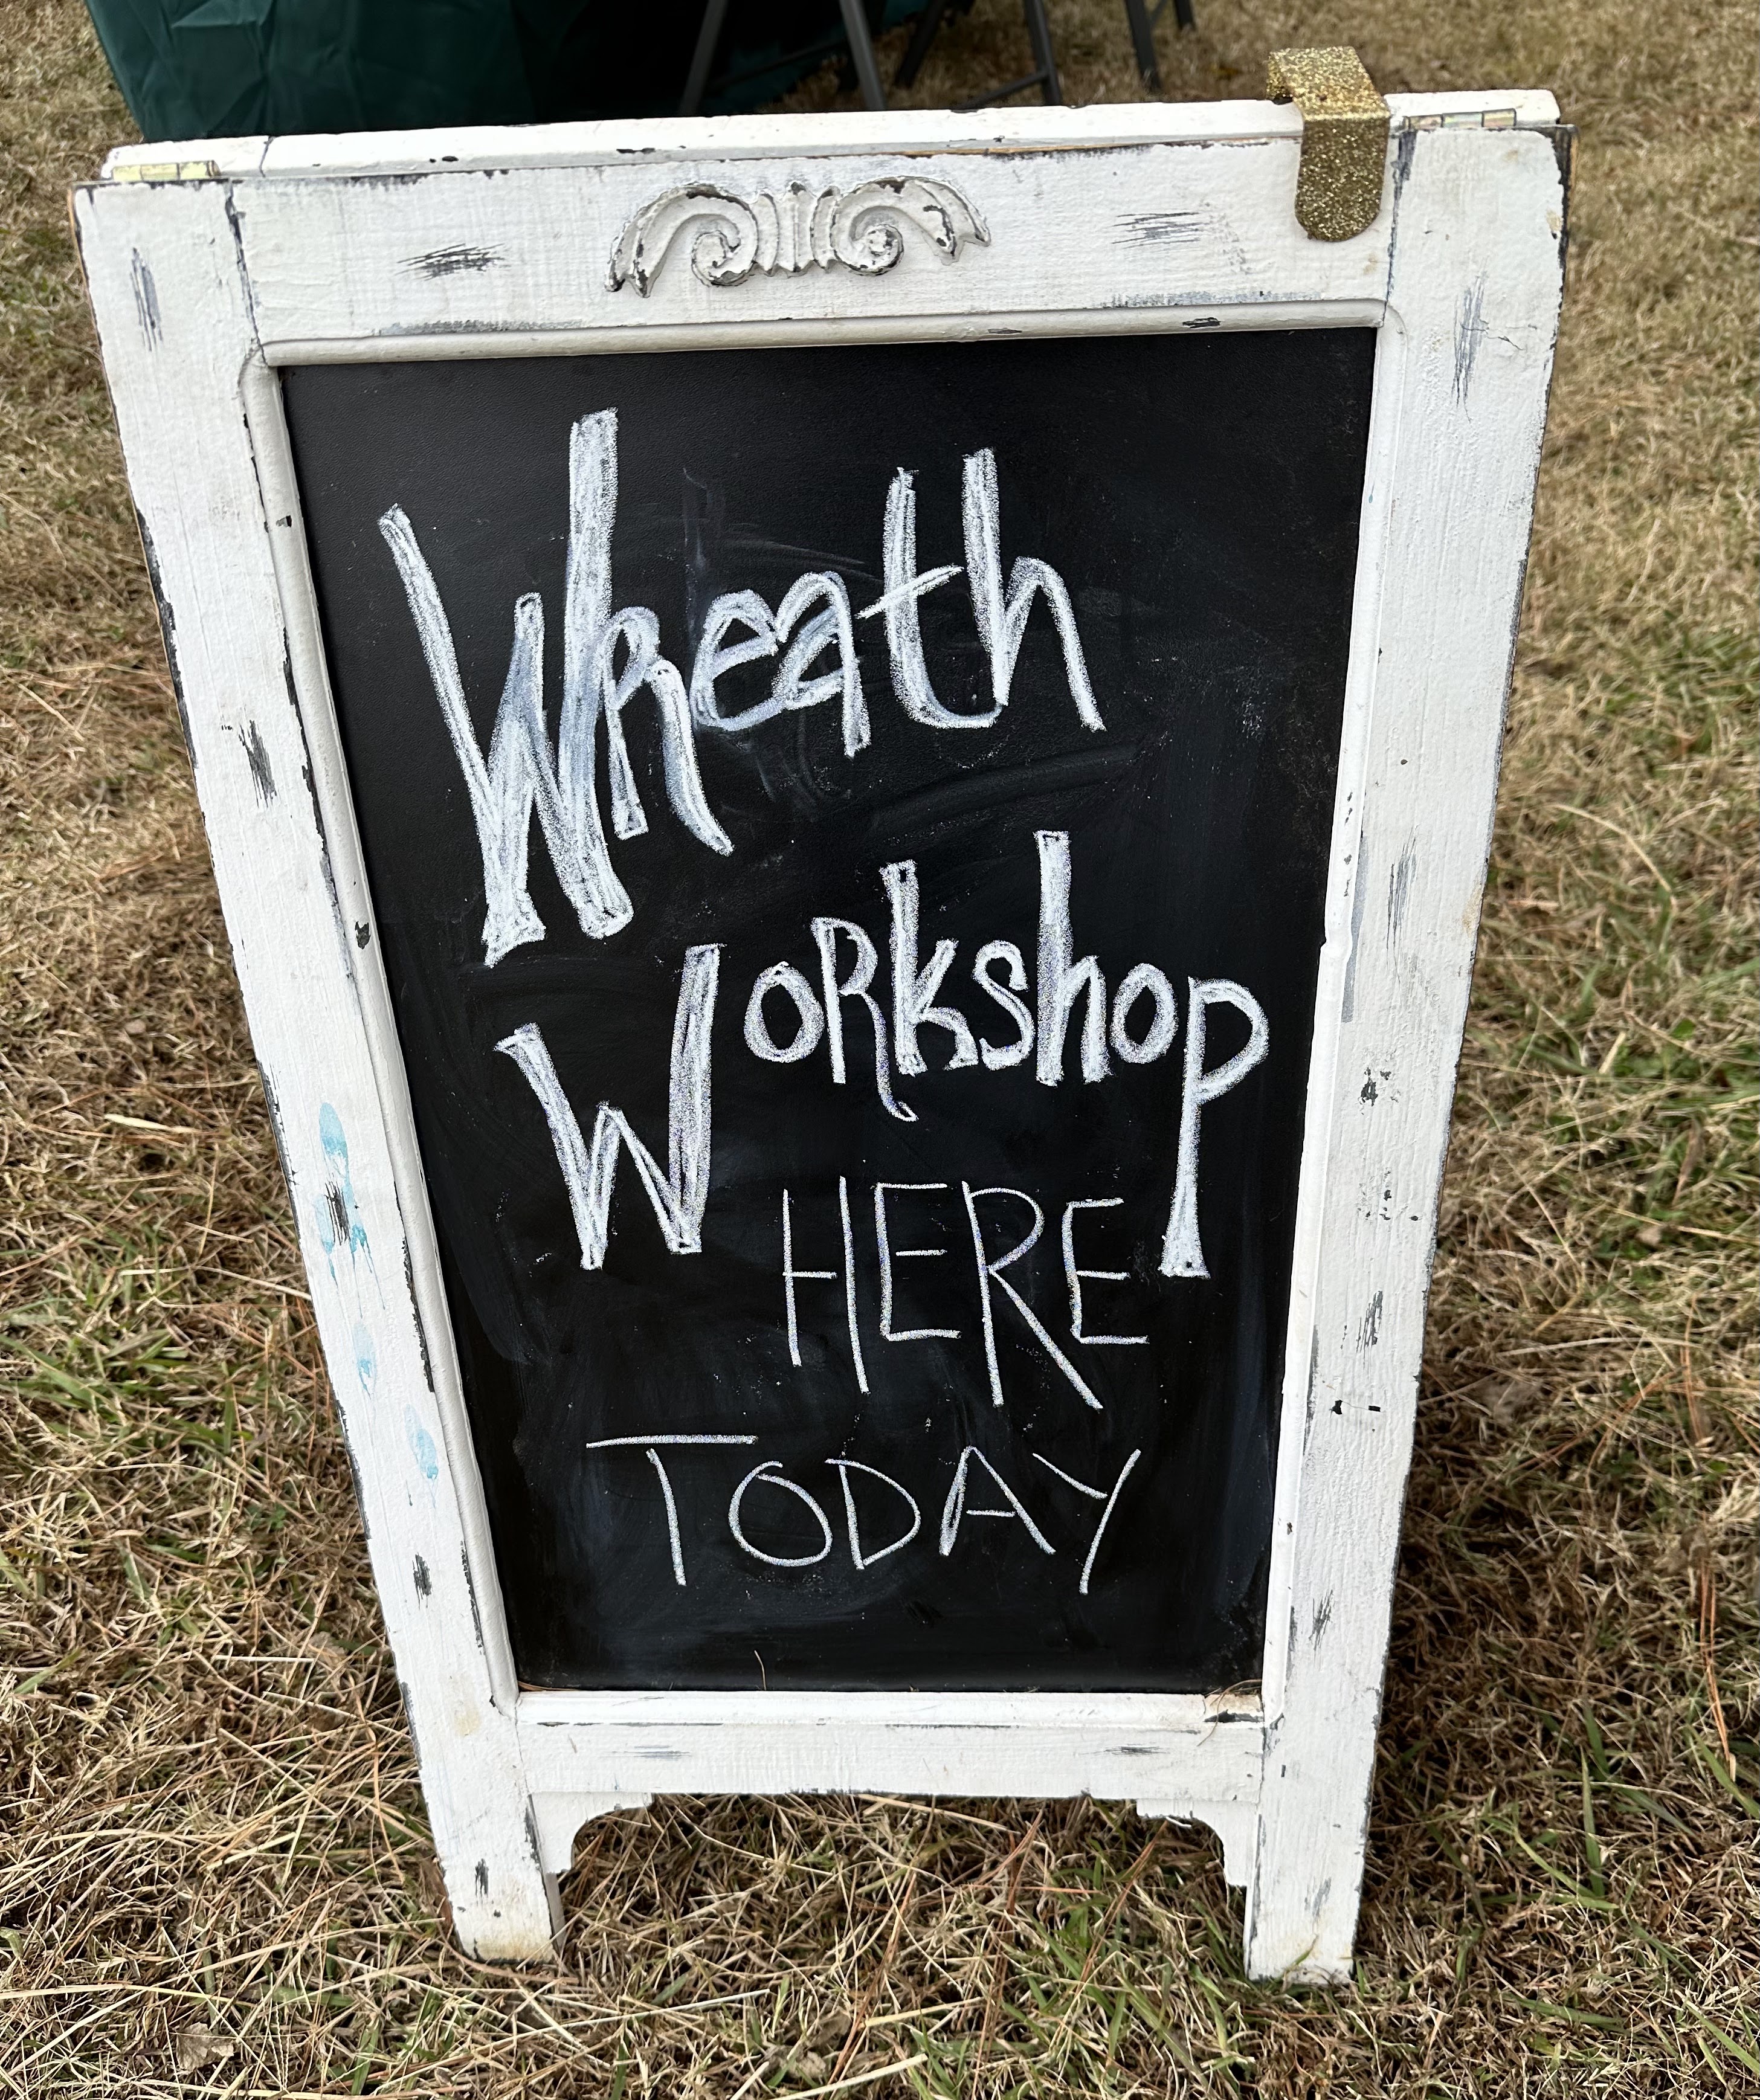 Wreath
Workshop
HERE
TODAY